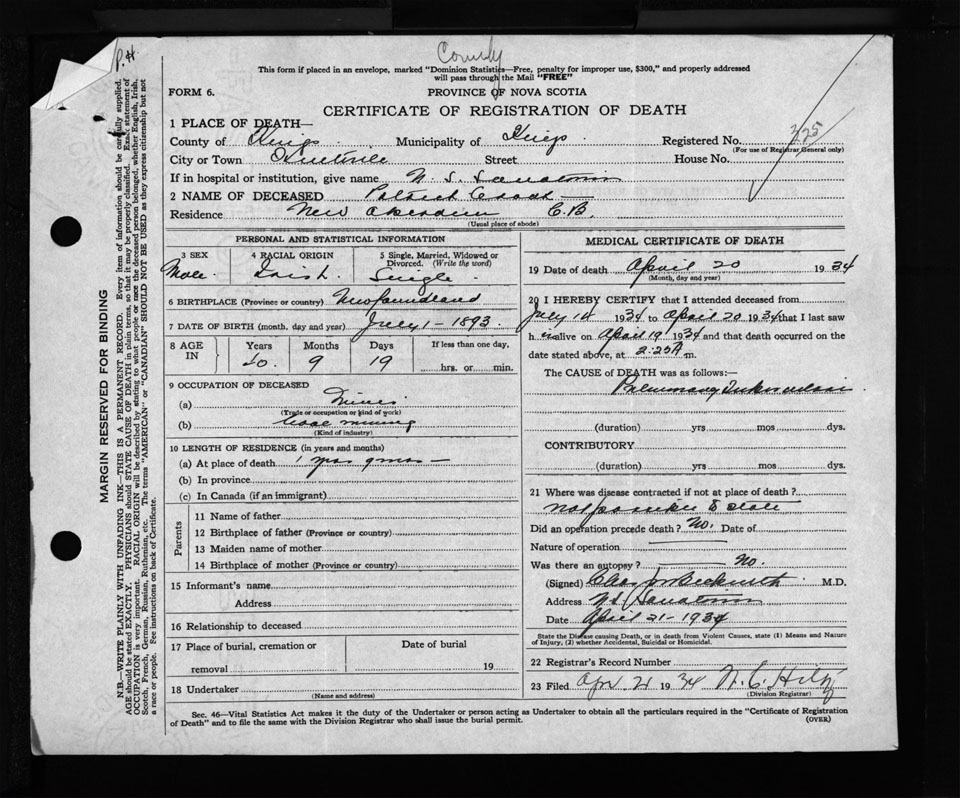 County
P.H.
This form if placed in an envelope, marked "Dominion Statistics—Free, penalty for improper use, $300," and properly addressed
will pass through the Mail "FREE"
FORM 6.
PROVINCE OF NOVA SCOTIA
CERTIFICATE OF REGISTRATION OF DEATH
1 PLACE OF DEATH—
County of Kings Municipality of Kings Registered No. 325
(For use of Registrar General only)
City or Town Kentville Street House No.
If in hospital or institution, give name N. S. Sanatorium
2 NAME OF DECEASED Patrick
Residence New Aberdeen C.B.
(Usual place of abode)
PERSONAL AND STATISTICAL INFORMATION
3 SEX 4 RACIAL ORIGIN 5 Single, Married, Widowed or
Divorced. (Write the word)
Male Irish Single
6 BIRTHPLACE (Province or country) Newfoundland
7 DATE OF BIRTH (month, day and year) July 1 - 1893.
8 AGE IN Years Months Days If less than one day,
40. 9 19 hrs. or min.
9 OCCUPATION OF DECEASED
(a) Miner
(Trade or occupation or kind of work)
(b) Coal mining
(Kind of industry)
10 LENGTH OF RESIDENCE (in years and months)
(a) At place of death 1 9 mos —
(b) In province
(c) In Canada (if an immigrant)
Parents
11 Name of father
12 Birthplace of father (Province or country)
13 Maiden name of mother
14 Birthplace of mother (Province or country)
15 Informant's name
Address
16 Relationship to deceased
17 Place of burial, cremation or Date of burial
removal 19
18 Undertaker
(Name and address)
MEDICAL CERTIFICATE OF DEATH
19 Date of death April 20 1934
(Month, day and year)
20 I HEREBY CERTIFY that I attended deceased from
July 14 1934 to April 20 1934 that I last saw
h im alive on April 19 1934 and that death occurred on the
date stated above, at 2:25 A m.
The CAUSE of DEATH was as follows:—
Pulmonary Tuberculosis
(duration) yrs mos dys.
CONTRIBUTORY
(duration) yrs mos dys.
21 Where was disease contracted if not at place of death?
Not possible to state
Did an operation precede death? No. Date of
Nature of operation
Was there an autopsy? No.
(Signed) Beckwith M.D.
Address NS Sanatorium
Date April 21 - 1934
State the Disease causing Death, or in death from Violent Causes, state (1) Means and Nature
of Injury, (2) whether Accidental, Suicidal or Homicidal.
22 Registrar's Record Number
23 Filed Apr 21 1934 N. C. Hiltz
(Division Registrar)
Sec. 46—Vital Statistics Act makes it the duty of the Undertaker or person acting as Undertaker to obtain all the particulars required in the "Certificate of Registration
of Death" and to file the same with the Division Registrar who shall issue the burial permit.
(OVER)
MARGIN RESERVED FOR BINDING
N.B.—WRITE PLAINLY WITH UNFADING INK—THIS IS A PERMANENT RECORD. Every item of information should be carefully supplied.
AGE should be stated EXACTLY. PHYSICIANS should STATE CAUSE OF DEATH in plain terms, so that it may be properly classified. Exact statement of
OCCUPATION is very important. RACIAL ORIGIN will be described by stating to what people or race the deceased person belonged, whether English, Irish,
Scotch, French, German, Russian, Ruthenian, etc. The terms "AMERICAN" or "CANADIAN" SHOULD NOT BE USED as they express citizenship but not
a race or people. See instructions on back of Certificate.